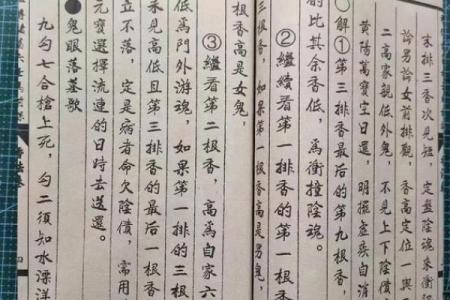 末排三香次見短，定盤陰魂來衝
論男論女前排觀，香高定位一與
二高家親低外鬼，不見上下陰債
黃陽萬寶空日選，明擺查疾自消
○解①第三排香最后的第九根香，
的比其余香低，為衝撞陰魂。
②繼續看第一排香的第一
三根香，如果第一根香高是男鬼，
根香高是女鬼，
③繼看第二根香，高為自家六
低為門外游魂，如果第一排的三根
來見高低且第三排香的最后一根香
立不落，定是病者命欠陰債，需用
元寶選擇流連的日時去送還。
●鬼眼落墓歌
九勾七合槍上死，勾二須知水漂洋